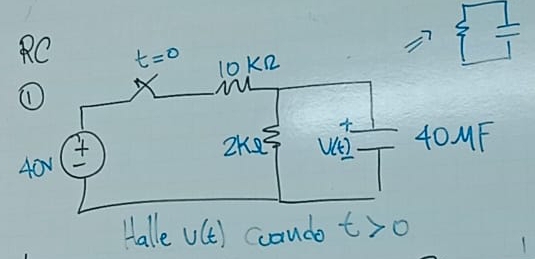 RC
①
t=0
10 KΩ
40V
+
-
2KΩ
+
V(t)
-
40MF
Halle V(t) cuando t>0